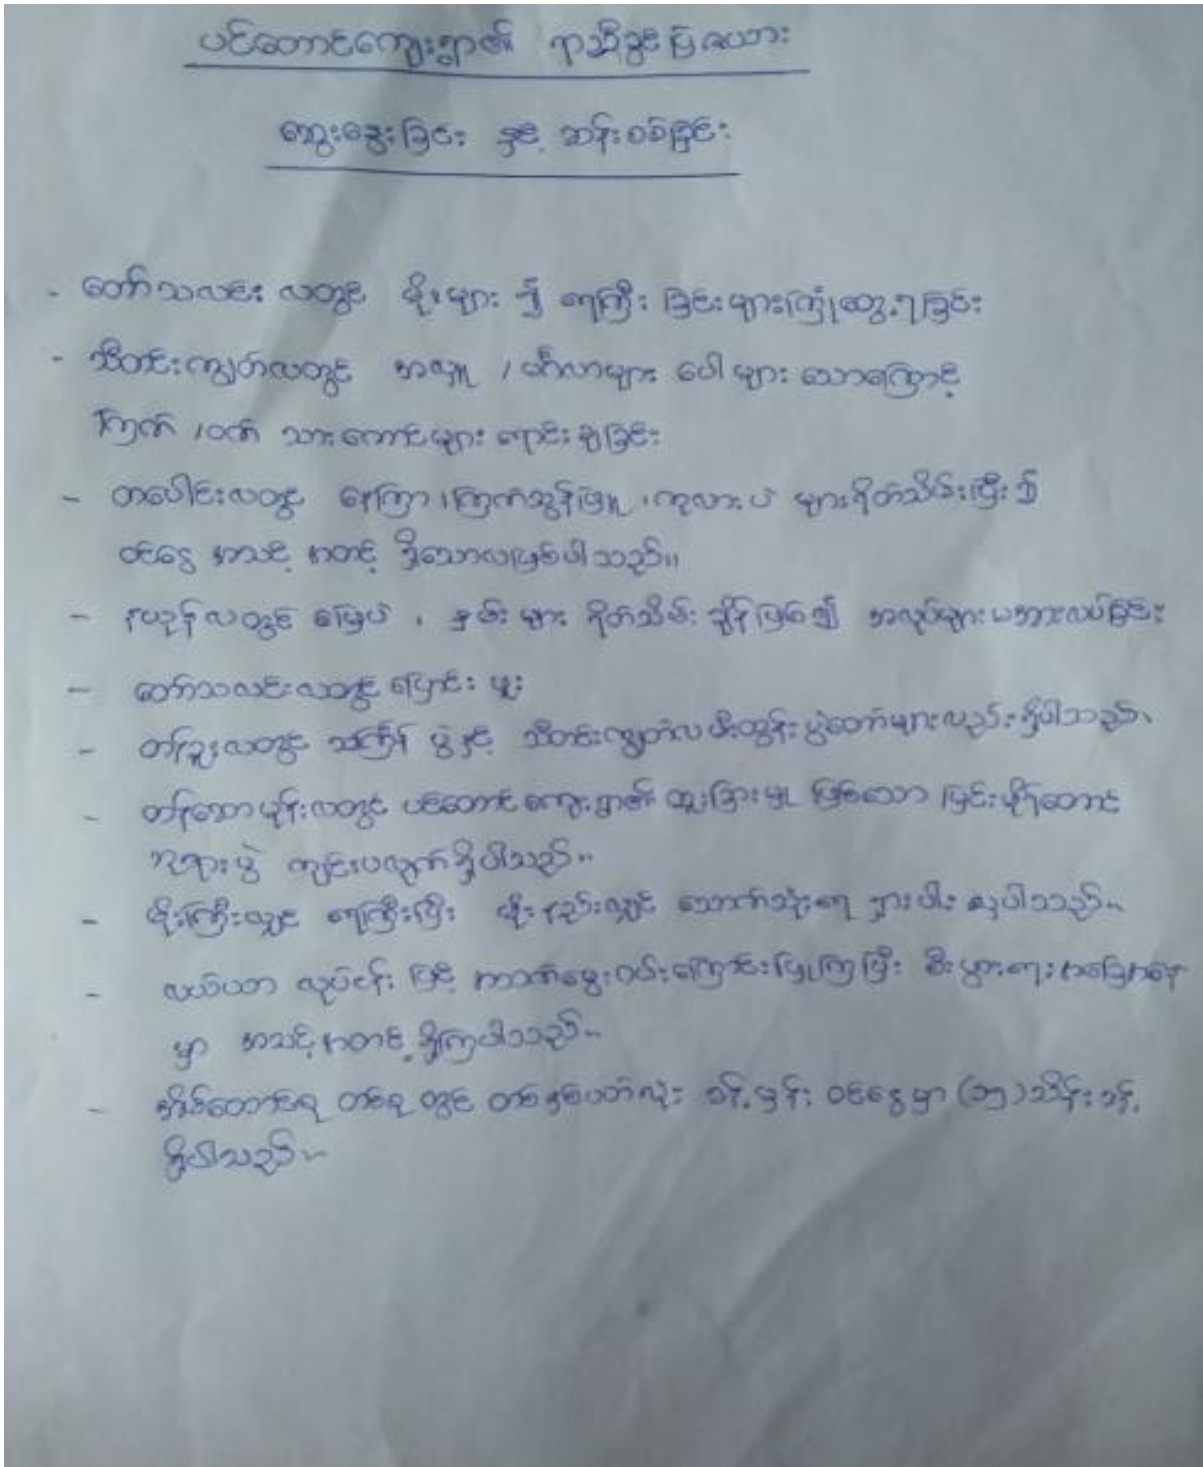 ပင်တောင်ကျေးရွာ၏ ရာသီခွင်ပြဇယား
ဆွေးနွေးခြင်း နှင့် ဆန်းစစ်ခြင်း
- တော်သလင်း လတွင် မိုးများ ၍ ရေကြီး ခြင်းများကြုံတွေ့ရခြင်း
- သီတင်းကျွတ်လတွင် အလှူ / မင်္ဂလာများ ပေါ များ သောကြောင့်
ကြက် / ဝက် သားကောင်များ ရောင်းချခြင်း
- တပေါင်းလတွင် နေကြာ ၊ ကြက်သွန်ဖြူ ၊ ကုလားပဲ များရိတ်သိမ်းပြီး ၍
ဝင်ငွေ အသင့် အတင့် ရှိသောလဖြစ်ပါသည်။
- နယုန်လတွင် မြေပဲ ၊ နှမ်း များ ရိတ်သိမ်း ချိန်ဖြစ်၍ အလုပ်များမအားလပ်ခြင်း
- တော်သလင်းလတွင် ပြောင်း ပျူး
- တန်ခူးလတွင် သင်္ကြန် ပွဲနှင့် သီတင်းကျွတ်လ မီးထွန်းပွဲတော်များလည်းရှိပါသည်။
- တန်ဆောင်မုန်းလတွင် ပင်တောင်ကျေးရွာ၏ ထူးခြားမှု ဖြစ်သော မြင်းမိုရ်တောင်
ဘုရားပွဲ ကျင်းပလျက်ရှိပါသည်။
- မိုးကြီးလျှင် ရေကြီးပြီး မိုးနည်းလျှင် သောက်သုံးရေ ရှားပါး လှပါသည်။
- လယ်ယာ လုပ်ငန်း ဖြင့် အသက်မွေးဝမ်းကြောင်းပြုကြပြီး စီးပွားရေးအခြေအနေ
မှာ အသင့်အတင့် ရှိကြပါသည်။
- အိမ်ထောင်စု တစ်စု တွင် တစ်နှစ်ပတ်လုံး ခန့်မှန်း ဝင်ငွေမှာ (၁၅) သိန်းခန့်
ရှိပါသည်။